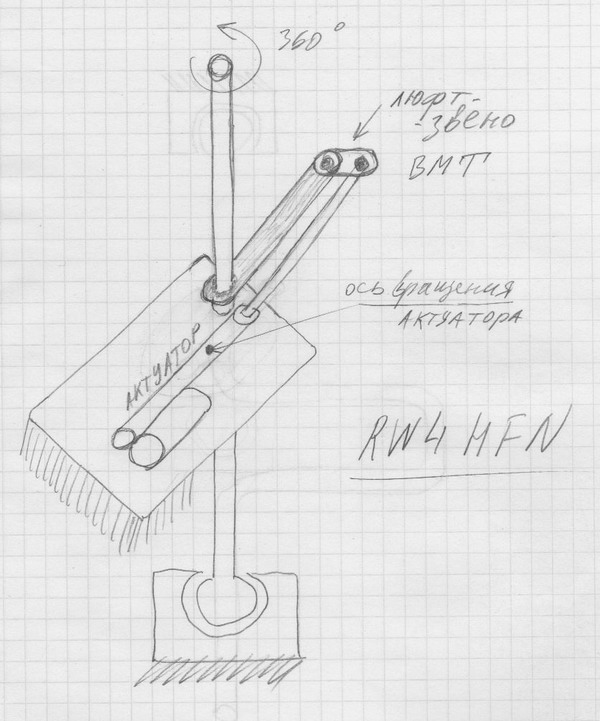 360°
люфт-
-звено
ВМТ
ось вращения
АКТУАТОРА
АКТУАТОР
RW4HFN